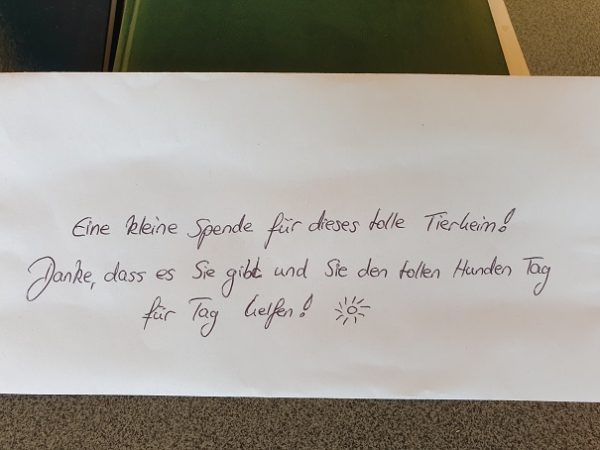 Eine kleine Spende für dieses tolle Tierheim!
Danke, dass es Sie gibt und Sie den tollen Hunden Tag
für Tag helfen!